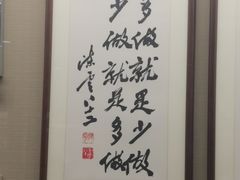 多做就是少做
少做就是多做
陈云